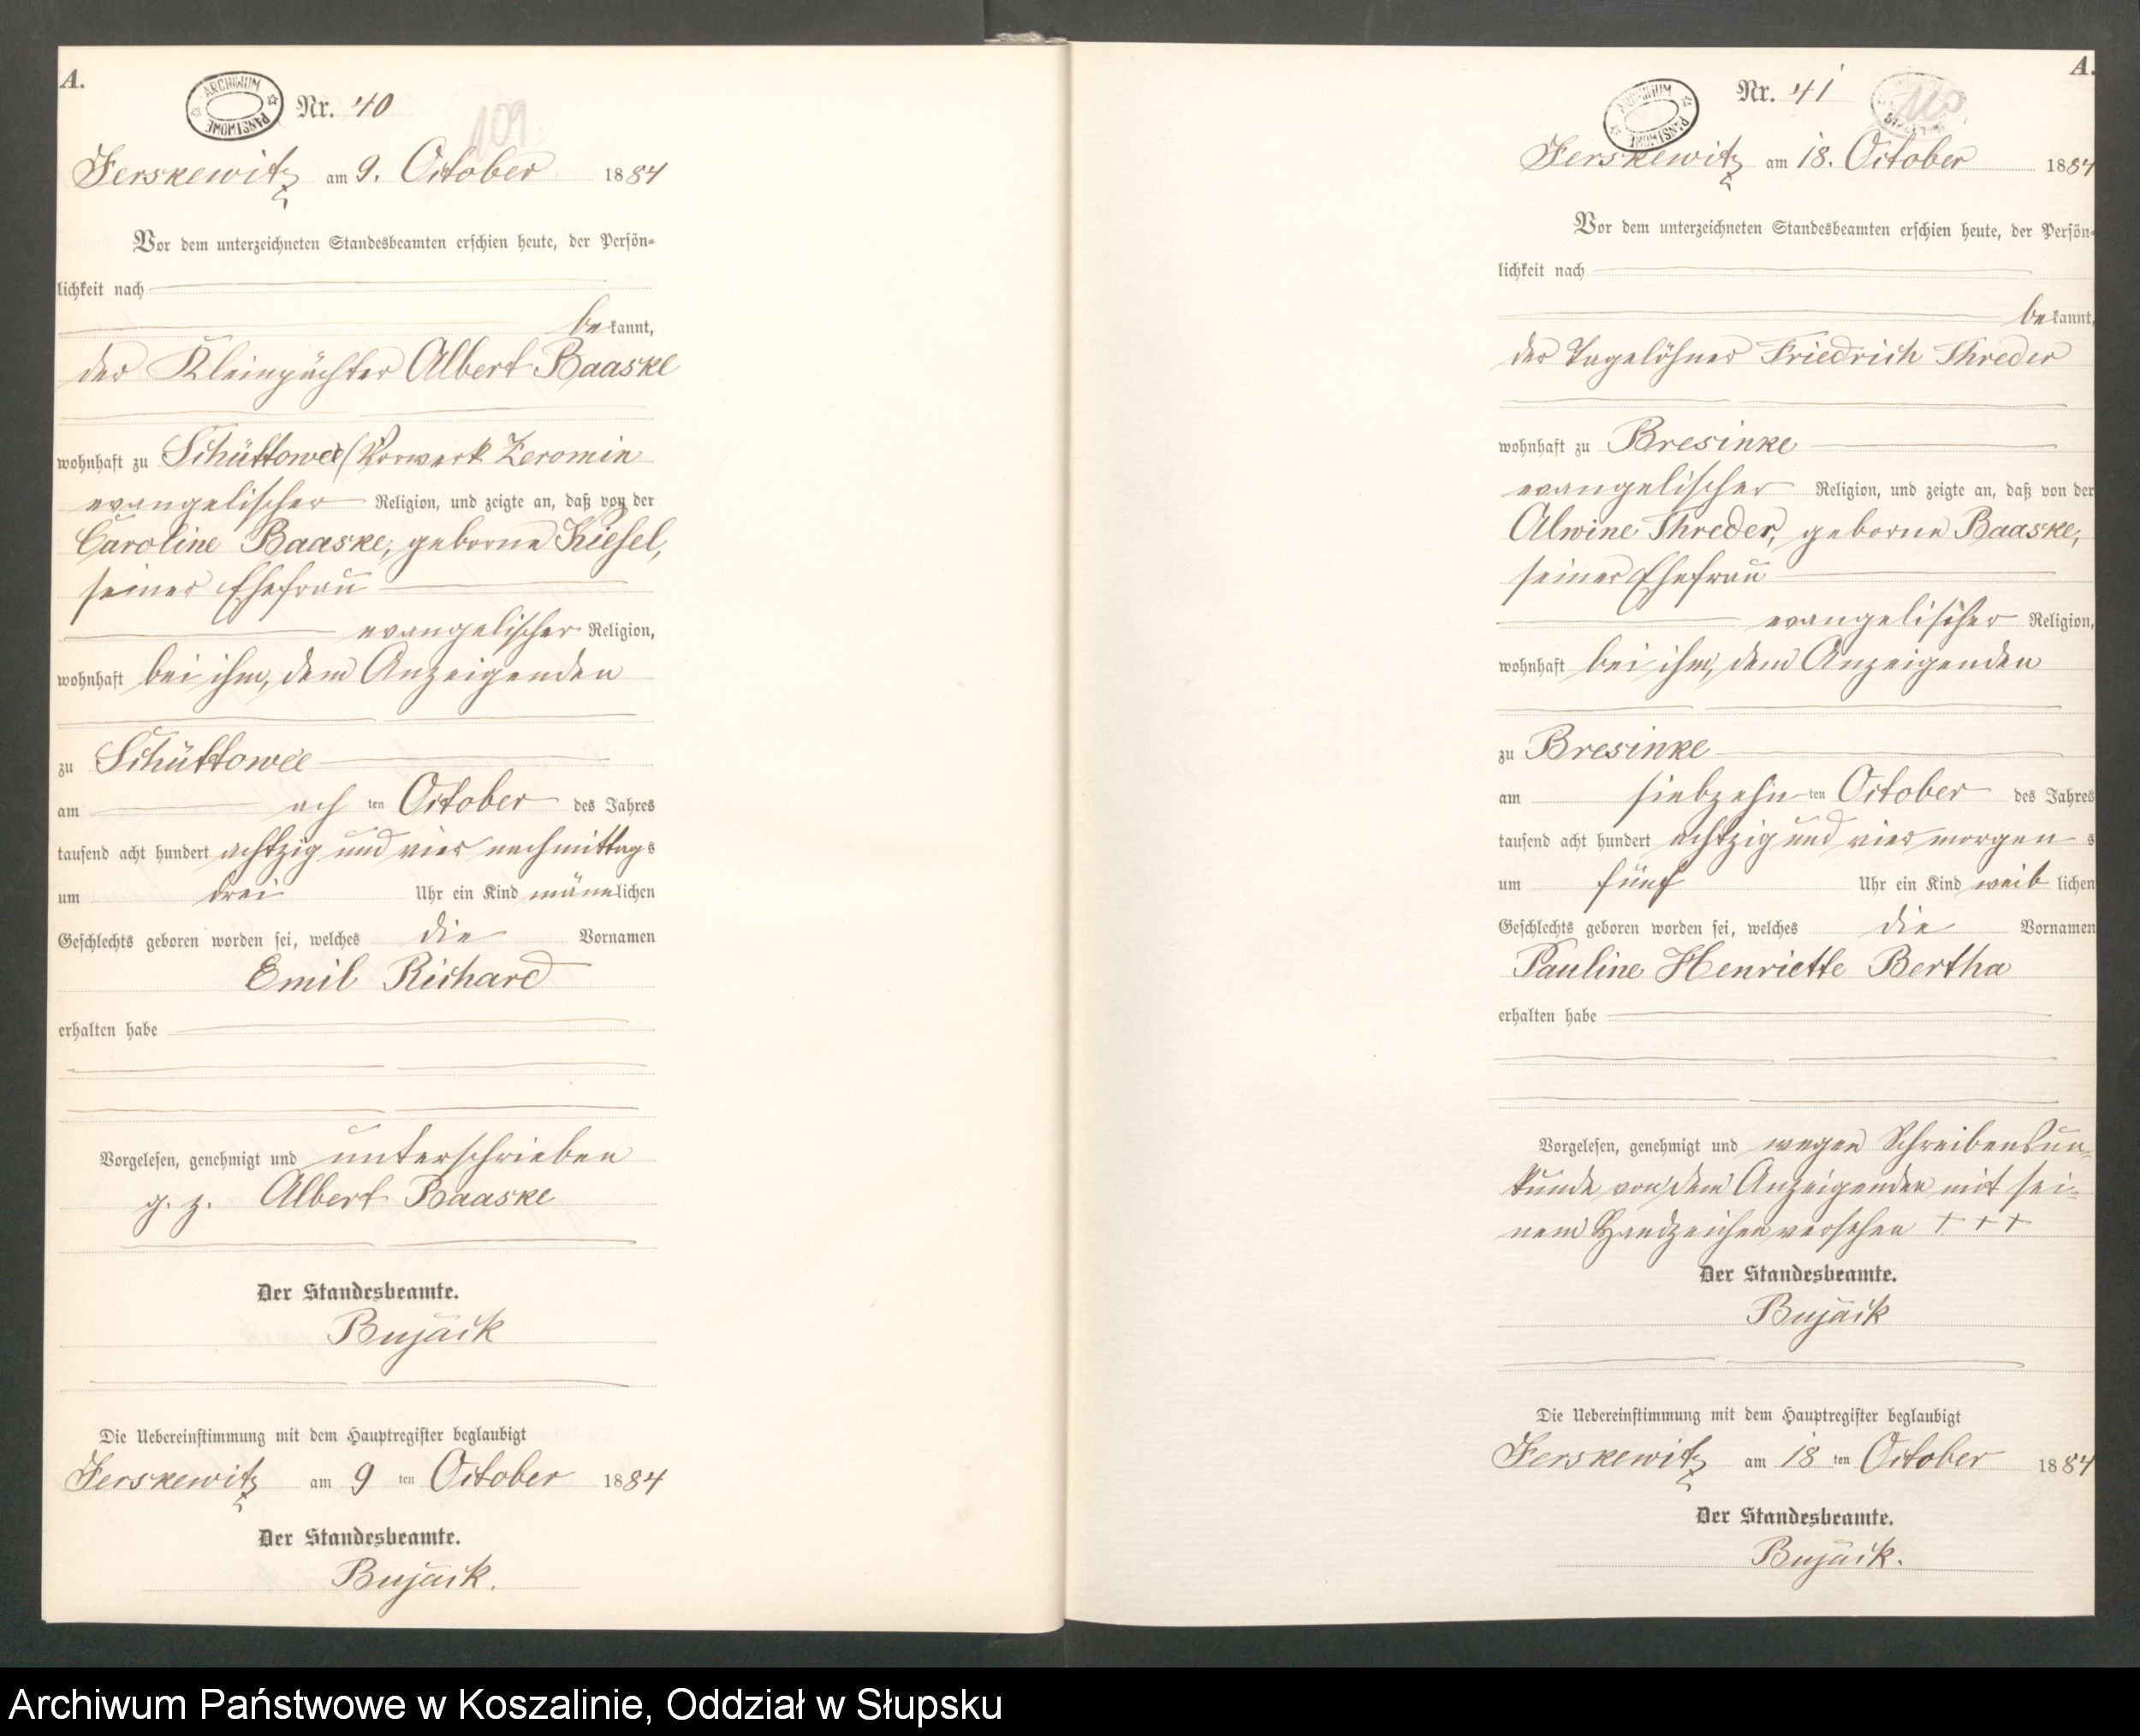 A.
ARCHIWUM PAŃSTWOWE
Nr. 40
109
Ferskewitz am 9. October 1884
Vor dem unterzeichneten Standesbeamten erschien heute, der Persön-
lichkeit nach
bekannt,
der Kleinpächter Albert Baaske
wohnhaft zu Schüttowee (Vorwerk Zeromin
evangelischer Religion, und zeigte an, daß von der
Caroline Baaske, geborne Kiesel,
seiner Ehefrau
evangelischer Religion,
wohnhaft bei ihm, dem Anzeigenden
zu Schüttowee
am ach ten October des Jahres
tausend acht hundert achtzig und vier nachmittags
um drei Uhr ein Kind männlichen
Geschlechts geboren worden sei, welches die Vornamen
Emil Richard
erhalten habe
Vorgelesen, genehmigt und unterschrieben
g. z. Albert Baaske
Der Standesbeamte.
Bujack
Die Uebereinstimmung mit dem Hauptregister beglaubigt
Ferskewitz am 9 ten October 1884
Der Standesbeamte.
Bujack.
A.
ARCHIWUM PAŃSTWOWE
Nr. 41
110
Ferskewitz am 18. October 1884
Vor dem unterzeichneten Standesbeamten erschien heute, der Persön-
lichkeit nach
bekannt,
der Tagelöhner Friedrich Threder
wohnhaft zu Bresinke
evangelischer Religion, und zeigte an, daß von der
Alwine Threder, geborne Baaske,
seiner Ehefrau
evangelischer Religion,
wohnhaft bei ihm, dem Anzeigenden
zu Bresinke
am siebzehn ten October des Jahres
tausend acht hundert achtzig und vier morgens
um fünf Uhr ein Kind weiblichen
Geschlechts geboren worden sei, welches die Vornamen
Pauline Henriette Bertha
erhalten habe
Vorgelesen, genehmigt und wegen Schreibensun-
kunde von dem Anzeigenden mit sei-
nem Handzeichen versehen + + +
Der Standesbeamte.
Bujack
Die Uebereinstimmung mit dem Hauptregister beglaubigt
Ferskewitz am 18 ten October 1884
Der Standesbeamte.
Bujack.
Archiwum Państwowe w Koszalinie, Oddział w Słupsku